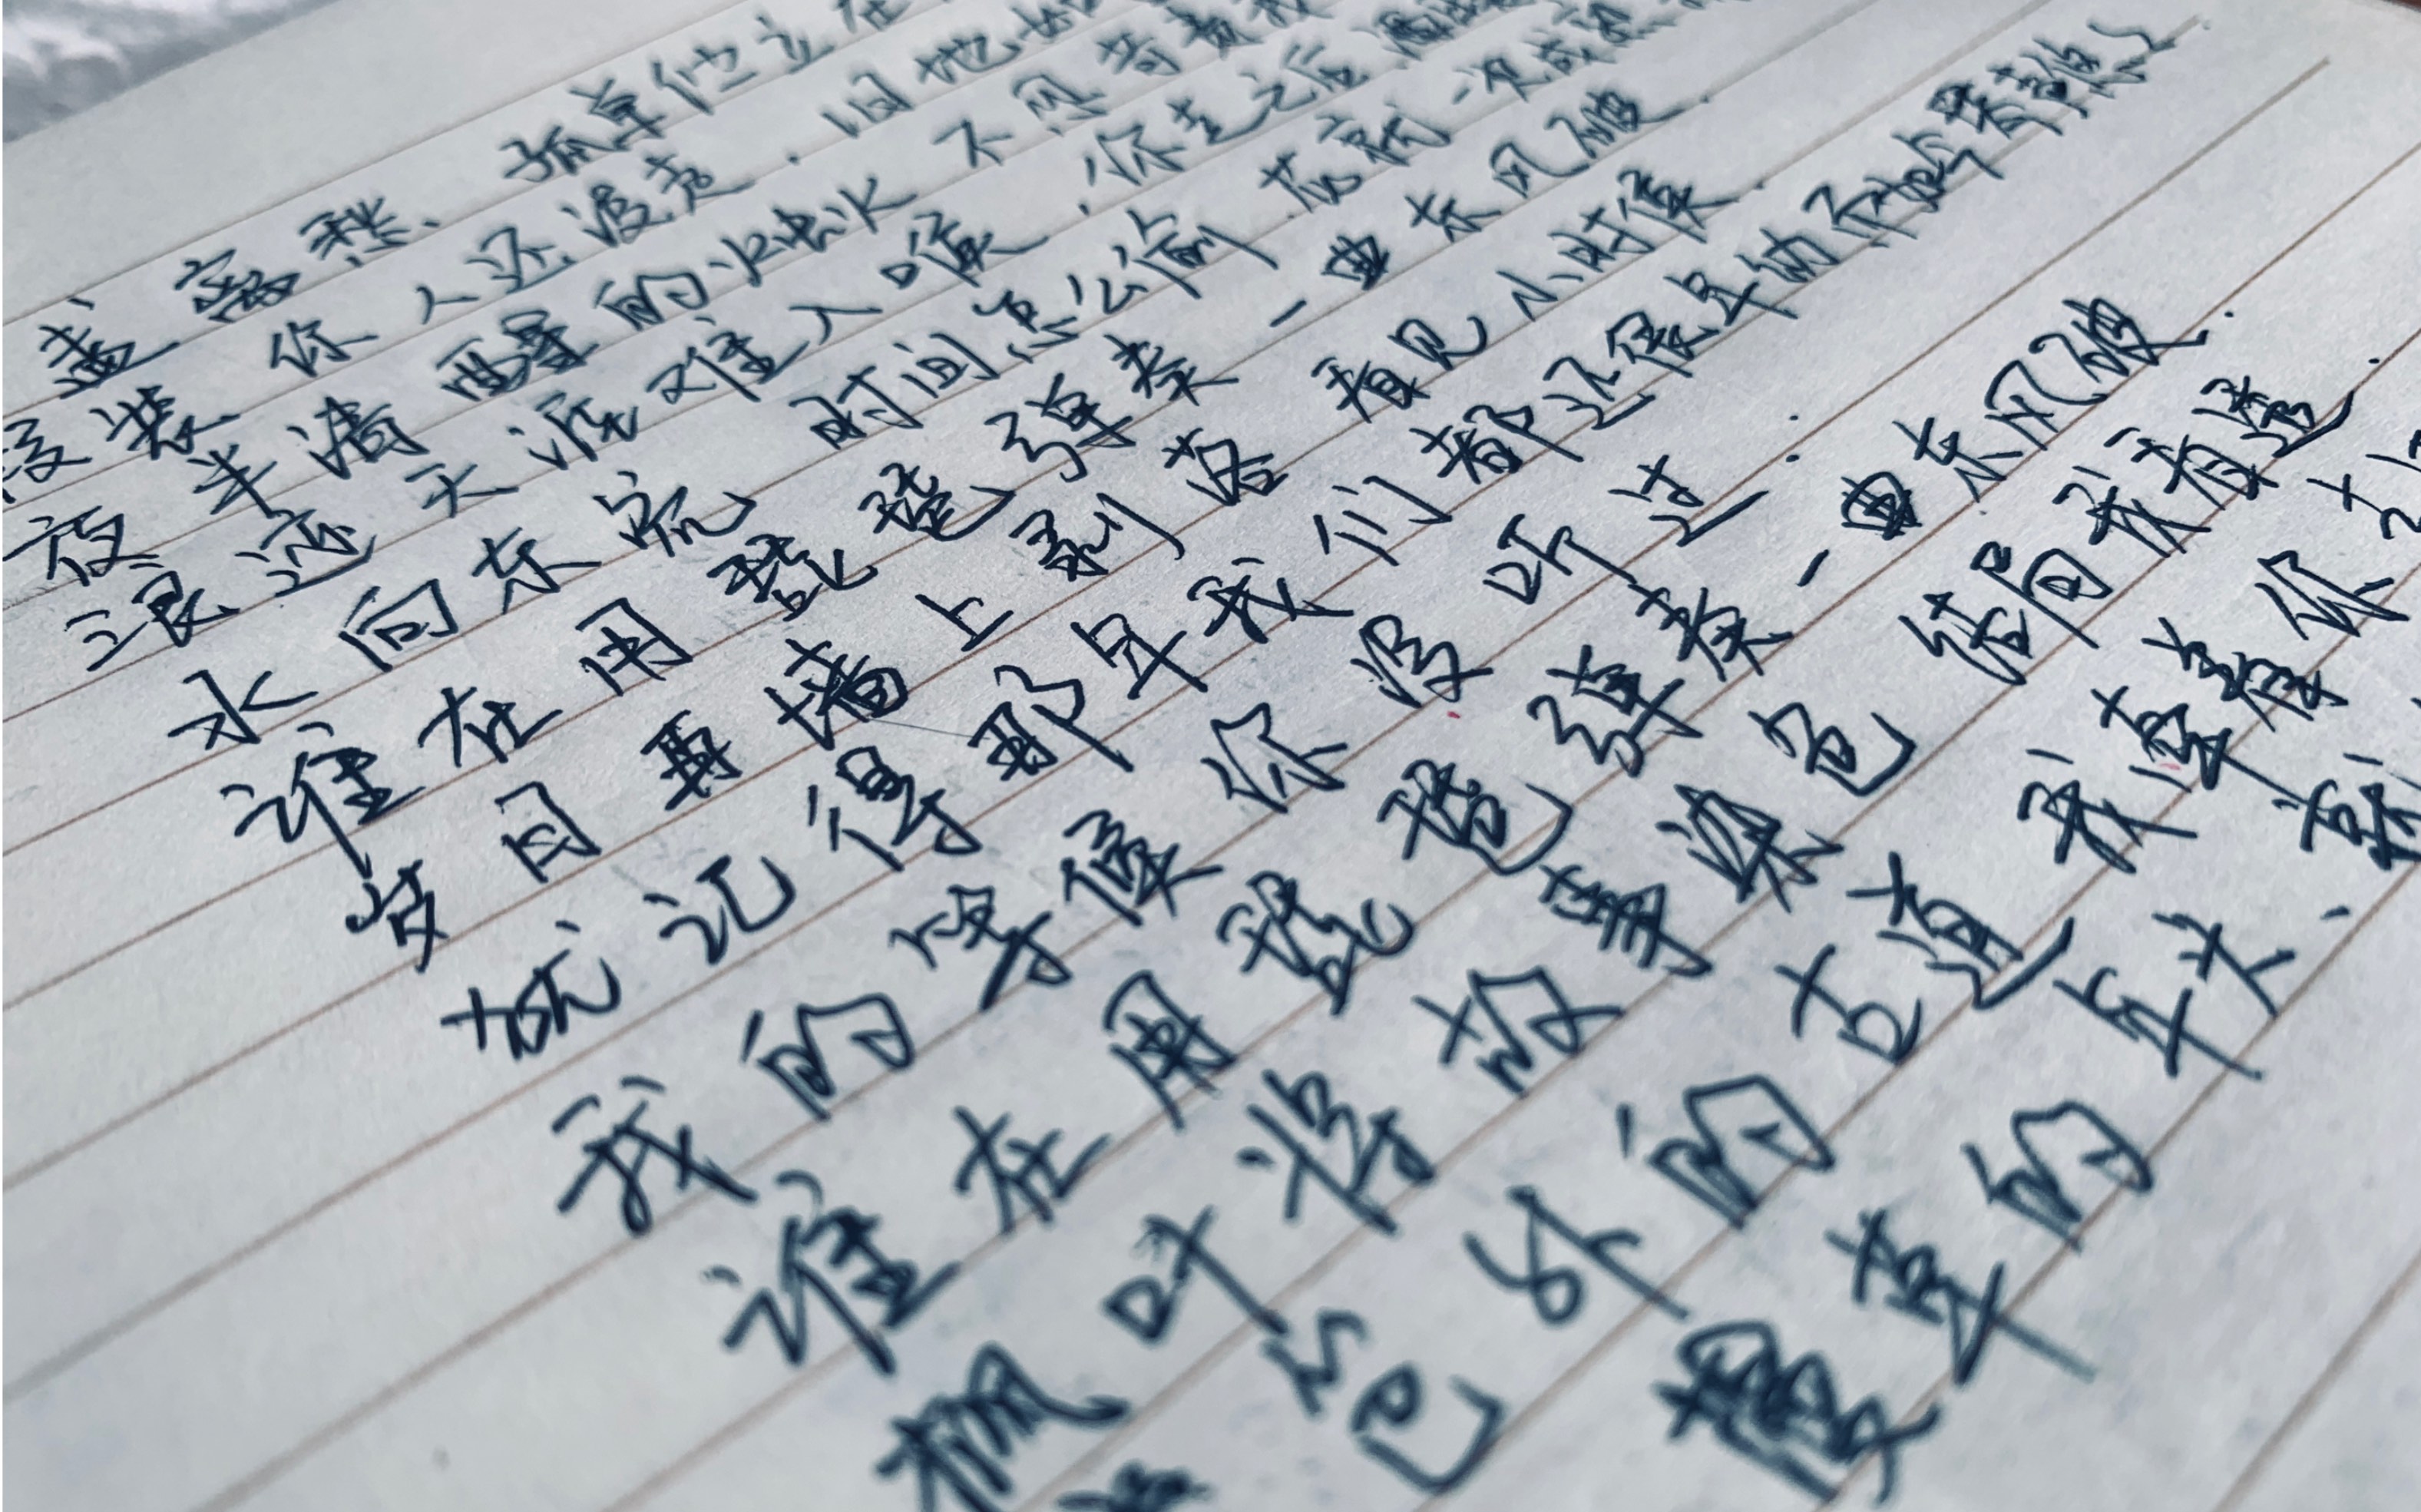 盏离愁、孤单伫立在
假装你人还没走.旧地如
夜半清醒的火烛火不忍苛责我
浪迹天涯难入喉.你走之后酒
水向东流 时间怎么偷 花就一次成熟
谁在用琵琶弹奏一曲东风破.
岁月再墙上剥落 看见小时候.
犹记得那年我们都还很年幼 而如今琴声幽幽
我的等候你没听过.
谁在用琵琶弹奏一曲东风破.
枫叶将故事染色 结局我看透.
篱笆外的古道 我牵着你走过
荒草的年头.